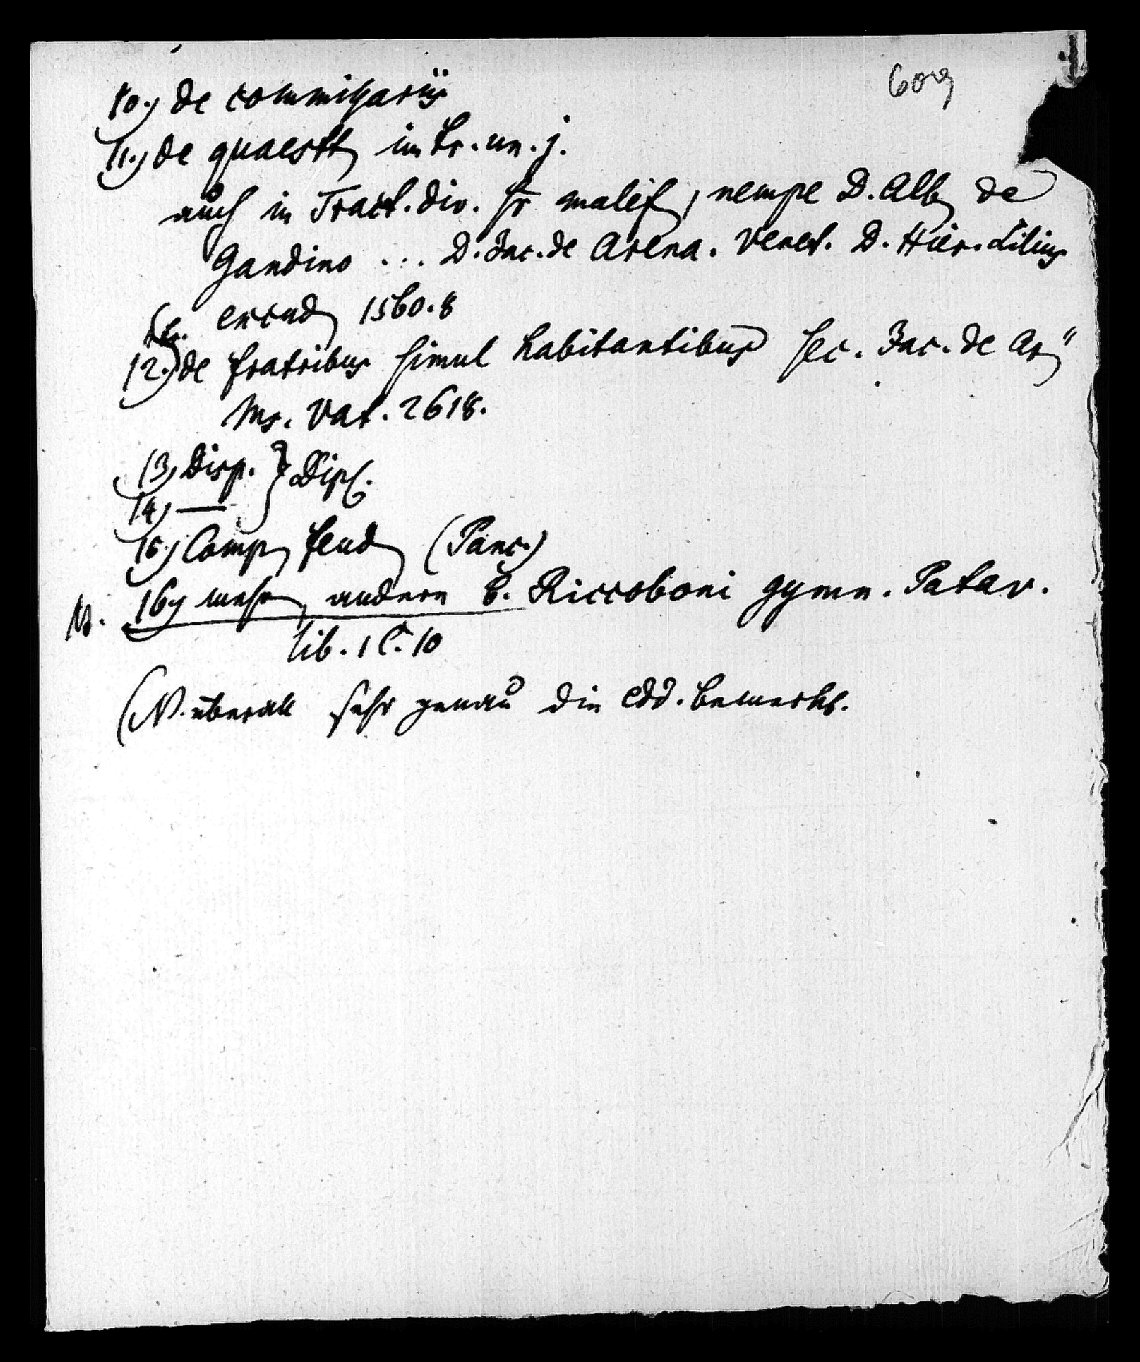 609
10.) de commissariis
11.) de quaestt im Tr. un. j.
auch in Tract. div. sr malef, nempe D. Alb de
Gandino ... D. Jac. de Arena. Venet. D. Hier. Lilius
excud 1560.8
12.) de fratribus simul habitantibus sec. Jac. de Ar"
Ms. Vat. 2618.
13) Disp. } Dipl.
14) —
15.) Comp feud (Panc.)
N. 16) mehr andern S. Riccoboni gymn. Patav.
lib. 1 C. 10
(N. überall sehr genau die edd. bemerkt.